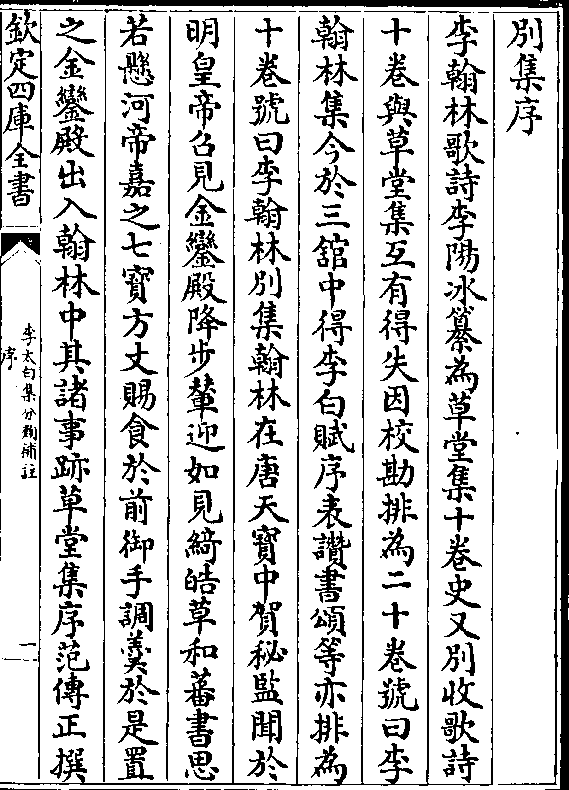 別集序
李翰林歌詩李陽冰纂為草堂集十卷史又別收歌詩
十卷與草堂集互有得失因校勘排為二十卷號曰李
翰林集今於三舘中得李白賦序表讚書頌等亦排為
十卷號曰李翰林別集翰林在唐天寶中賀秘監聞於
明皇帝召見金鑾殿降步輦迎如見綺皓草和蕃書思
若懸河帝嘉之七寳方丈賜食於前御手調羮於是置
之金鑾殿出入翰林中其諸事跡草堂集序范傳正撰
欽定四庫全書
李太白集分類補註
序
一